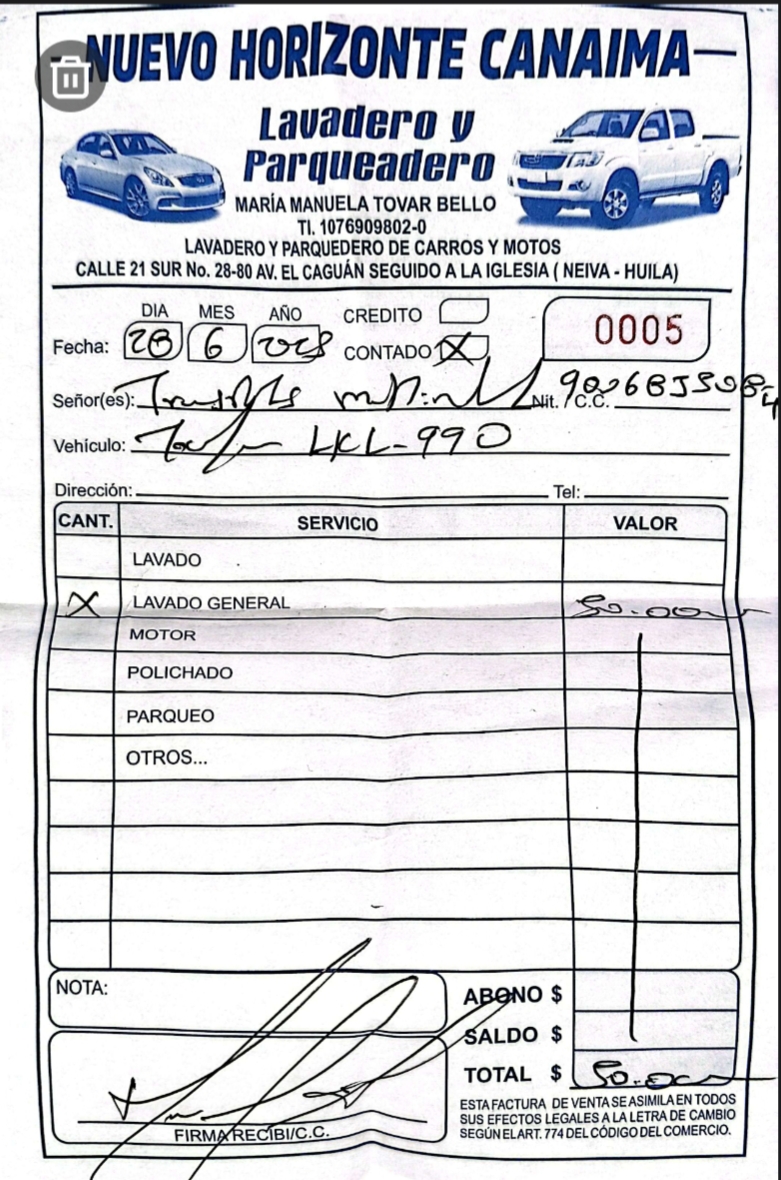 NUEVO HORIZONTE CANAIMA
Lavadero y
Parqueadero
MARÍA MANUELA TOVAR BELLO
TI. 1076909802-0
LAVADERO Y PARQUEDERO DE CARROS Y MOTOS
CALLE 21 SUR No. 28-80 AV. EL CAGUÁN SEGUIDO A LA IGLESIA ( NEIVA - HUILA)
DIA MES AÑO CREDITO
Fecha: 28 6 CONTADO X 0005
Señor(es): Nit. / C.C.
Vehículo: LKL-990
Dirección: Tel:
CANT. SERVICIO VALOR
LAVADO
X LAVADO GENERAL 50.000
MOTOR
POLICHADO
PARQUEO
OTROS...
NOTA:
ABONO $
SALDO $
TOTAL $ 50.000
FIRMA RECIBI/C.C.
ESTA FACTURA DE VENTA SE ASIMILA EN TODOS
SUS EFECTOS LEGALES A LA LETRA DE CAMBIO
SEGÚN EL ART. 774 DEL CÓDIGO DEL COMERCIO.